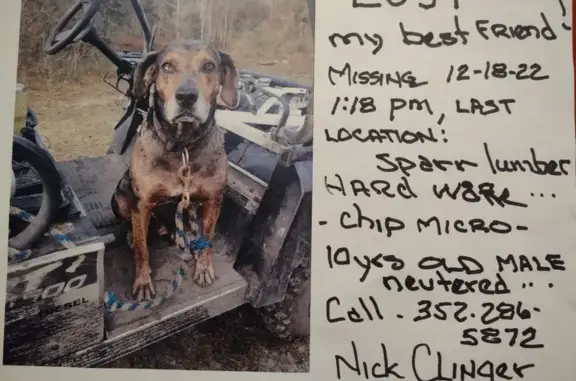 LOST !
my best FRIEND
MISSING 12-18-22
1:18 pm, LAST
LOCATION:
Sparr lumber
HARD WORK...
-Chip MICRO-
10yrs OLD MALE
neutered...
Call. 352.286-
5872
Nick Clinger
00
DIESEL